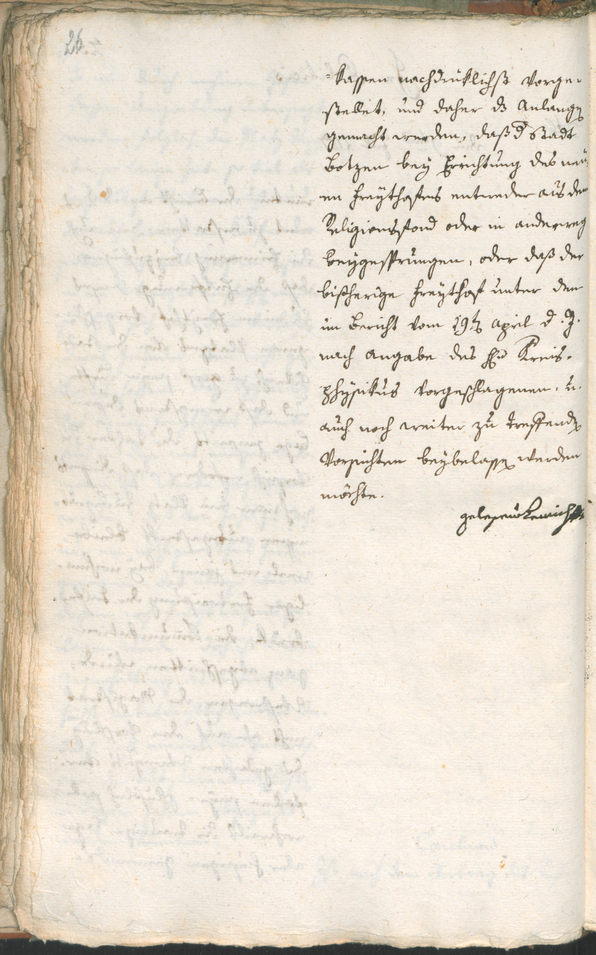 26.
=Kassen nachdrüklichst vorge=
stellet, und daher ds Anlangen
gemacht werden, daß d Stadt
Botzen bey Errichtung des neu
en Freythofens entweder aus dem
Religionsfond oder in anderweg
beygesprungen, oder daß der
bisherige Freythof unter den
im Bericht vom 19ten April d. J.
nach Angabe des Hrn Kreis=
physikus vorgeschlagenen, u.
auch noch weiter zu treffenden
Vorsichten beybelassen werden
möchte.